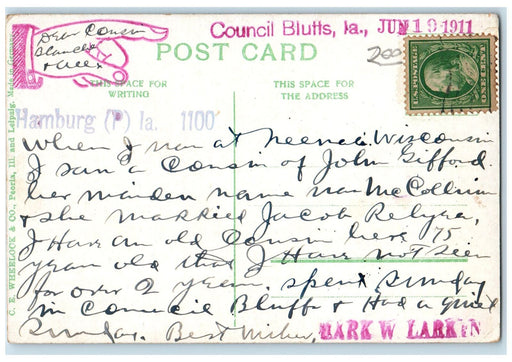 Council Bluffs, Ia., JUN 19 1911
Dear Cousin
Blanche
& Allex
POST CARD
200
THIS SPACE FOR
WRITING
THIS SPACE FOR
THE ADDRESS
ONE CENT
Hamburg (P) Ia. 1100
When I was at Neenah Wisconsin
I saw a Cousin of John Gifford
her maiden name was McCollum
& she married Jacob Relyea,
I Have an old Cousin here 75
year old that I Have not seen
for over 2 years. spent Sunday
in Council Bluffs & Had a quiet
Sunday. Best Wishes,
MARK W LARKIN
C. E. WHEELOCK & CO., Peoria, Ill. and Leipzig. Made in Germany